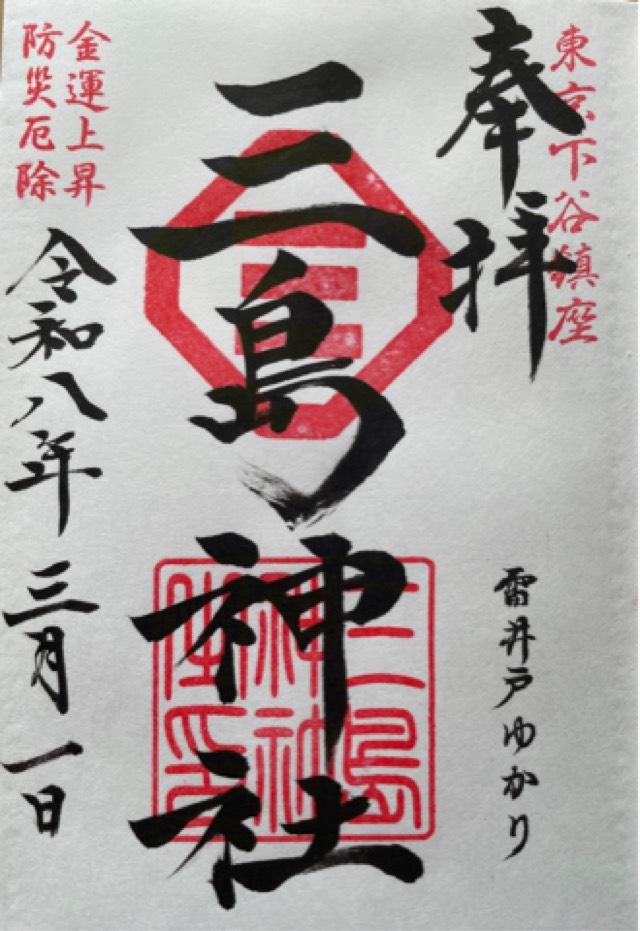 東京下谷鎮座
奉拝
雷井戸ゆかり
三島神社
三島
神社
金運上昇
防災厄除
令和八年三月一日